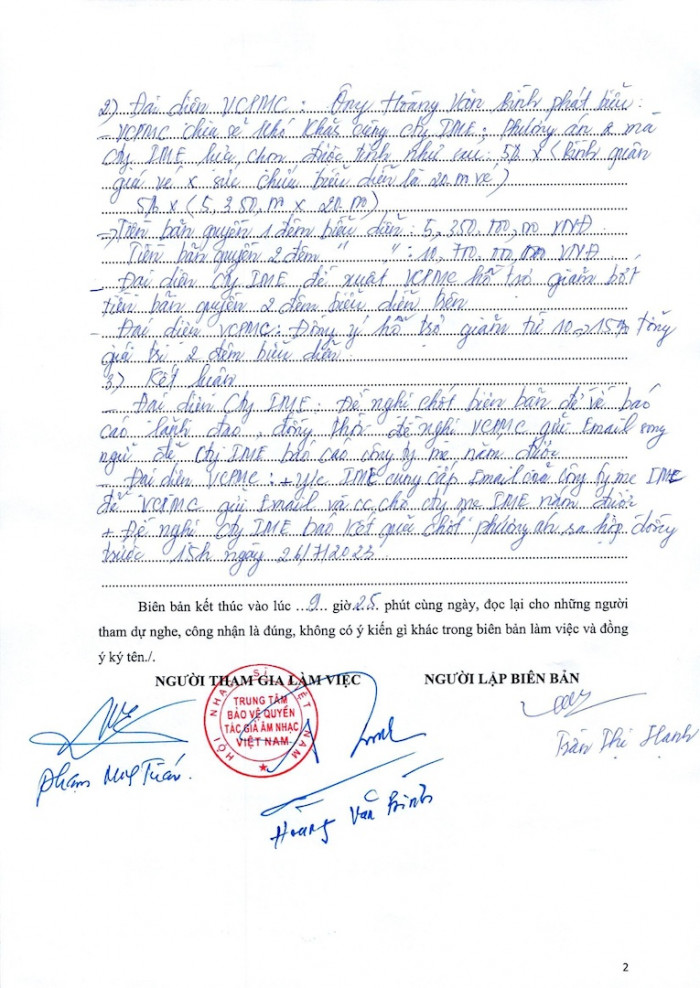 2) Đại diện VCPMC: Ông Hoàng Văn Bình phát biểu:
- VCPMC chia sẻ khó khăn cùng Cty IME; Phương án 2 mà
Cty IME lựa chọn được tính như sau: 5% x (Bình quân
giá vé x sức chứa biểu diễn là 20.m vé)
5% x (5,350,m x 20.m)
=> Tiền bản quyền 1 đêm biểu diễn: 5,350.000,000 VNĐ.
Tiền bản quyền 2 đêm " ": 10,700.000,000 VNĐ
- Đại diện Cty IME đề xuất VCPMC hỗ trợ giảm bớt
tiền bản quyền 2 đêm biểu diễn
- Đại diện VCPMC: Đồng ý hỗ trợ giảm từ 10->15% tổng
giá trị 2 đêm biểu diễn.
3) Kết luận
- Đại diện Cty IME: Đề nghị chốt biên bản để về báo
cáo lãnh đạo, đồng thời đề nghị VCPMC gửi Email song
ngữ để Cty IME báo cáo công ty mẹ nắm được
- Đại diện VCPMC: + y/c IME cung cấp Email của công ty mẹ IME
để VCPMC gửi Email và cc cho cty mẹ IME nắm được
+ Đề nghị Cty IME báo kết quả chốt phương án, hợp đồng
trước 15h ngày 26/7/2023
Biên bản kết thúc vào lúc ...9... giờ 25 phút cùng ngày, đọc lại cho những người
tham dự nghe, công nhận là đúng, không có ý kiến gì khác trong biên bản làm việc và đồng
ý ký tên./.
NGƯỜI THAM GIA LÀM VIỆC NGƯỜI LẬP BIÊN BẢN
HỘI NHẠC SĨ VIỆT NAM
TRUNG TÂM
BẢO VỆ QUYỀN
TÁC GIẢ ÂM NHẠC
VIỆT NAM
Trần Thị Hạnh
Phạm Tuấn
Hoàng Văn Bình
2